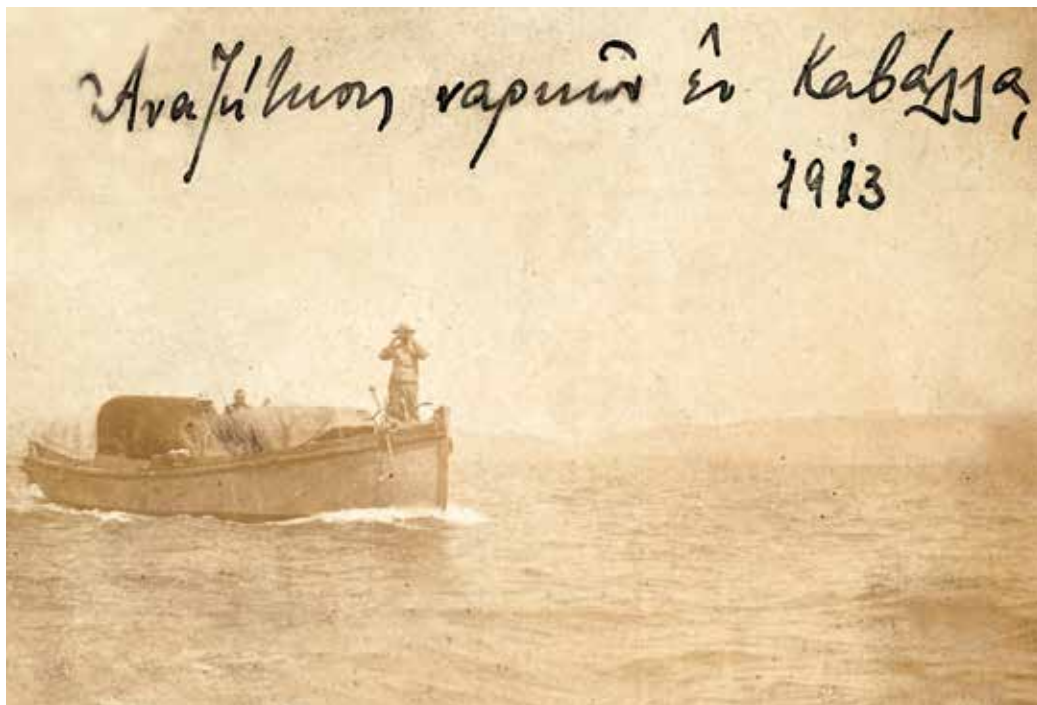 Ἀναζήτησις ναρκῶν ἐν Καβάλλᾳ
1913